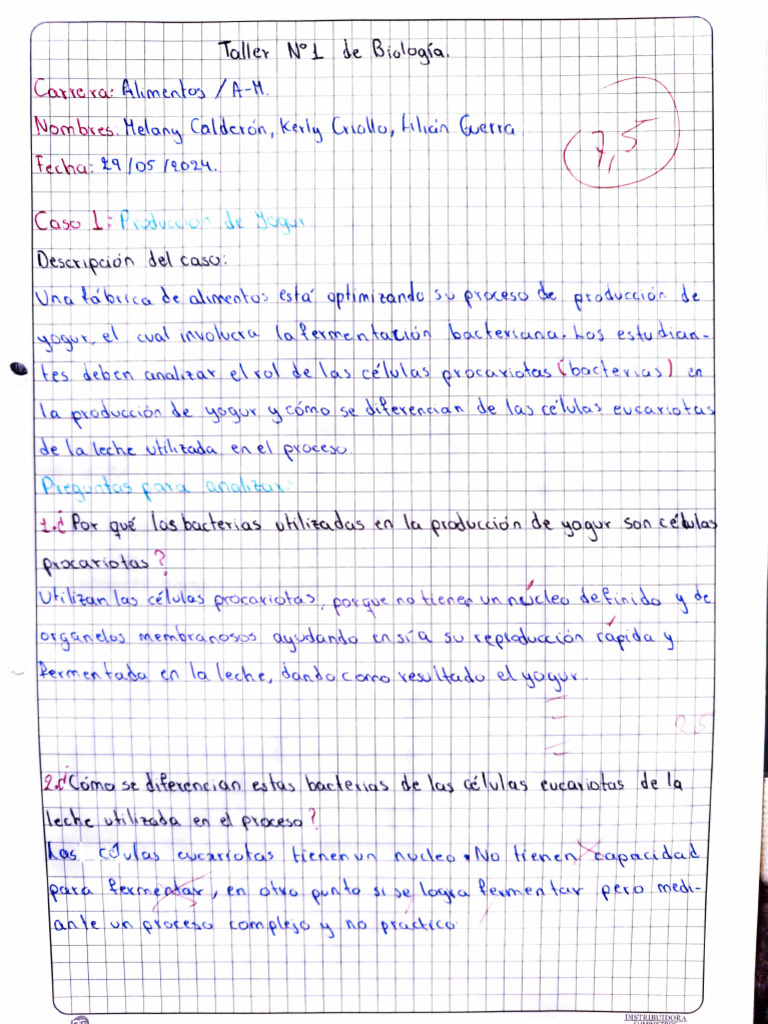 Taller N°1 de Biología.
Carrera: Alimentos / A-M.
7,5
Nombres. Melany Calderón, Kerly Criollo, Lilián Guerra
Fecha: 29/05/2024.
Caso 1: Produccion de Yogur
Descripción del caso:
Una fábrica de alimentos está optimizando su proceso de producción de
yogur, el cual involucra la fermentación bacteriana. Los estudian-
tes deben analizar el rol de las células procariotas (bacterias) en
la producción de yogur y cómo se diferencian de las células eucariotas
de la leche utilizada en el proceso.
Preguntas para analizar:
1.¿Por qué las bacterias utilizadas en la producción de yogur son células
procariotas?
Utilizan las células procariotas, porque no tienen un núcleo definido y de
organelos membranosos ayudando en sía su reproducción rápida y
fermentada en la leche, dando como resultado el yogur.
2.¿Cómo se diferencian estas bacterias de las células eucariotas de la
leche utilizada en el proceso?
Las células eucariotas tienen un nucleo. No tienen capacidad
para fermentar, en otro punto si se logra fermentar pero medi-
ante un proceso complejo y no práctico.
DISTRIBUIDORA